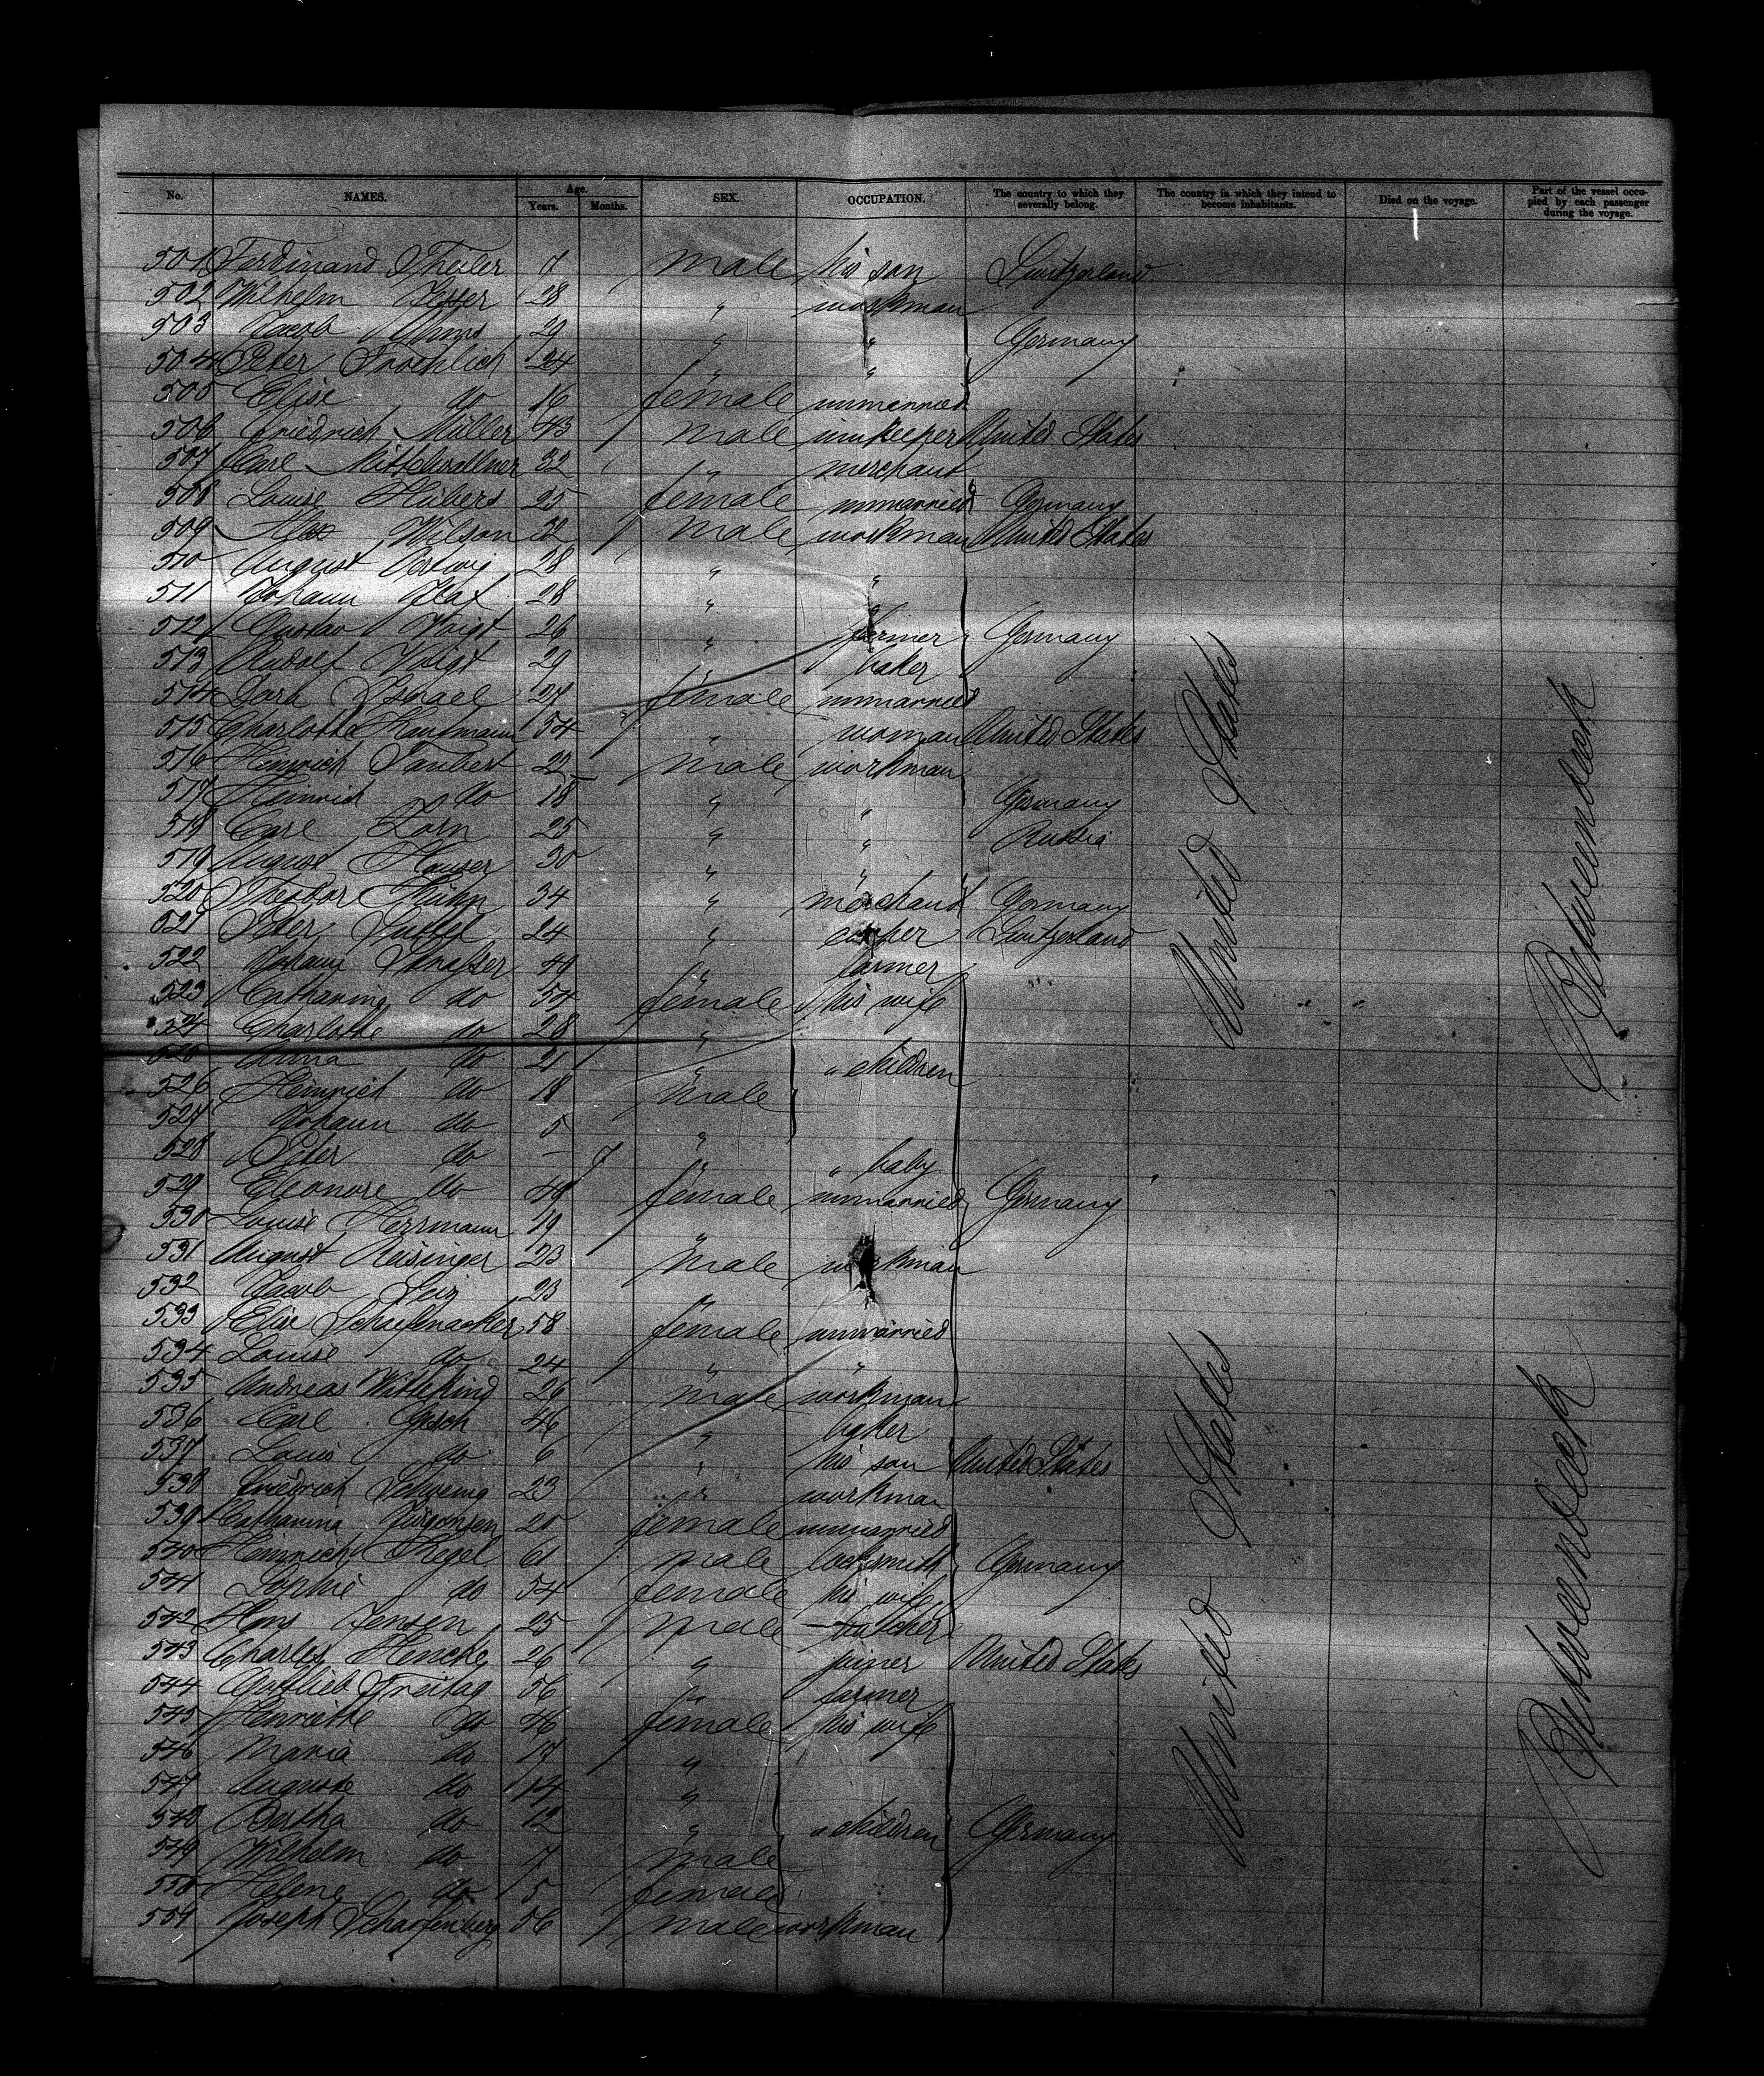 No. NAMES. Age. Years. Months. SEX. OCCUPATION. The country to which they severally belong. The country in which they intend to become inhabitants. Died on the voyage. Part of the vessel occupied by each passenger during the voyage.
501 Ferdinand Theiler 7 male his son Switzerland
502 Wilhelm 28 " workman
503 Jacob 29 " " Germany
504 Peter Froehlich 24 " "
505 Elise do 16 female unmarried
506 Friedrich Müller 43 male innkeeper United States
507 Carl Mittelwallner 32 " merchant
508 Louise Hübers 25 female unmarried Germany
509 Alex Wilson 52 male workman United States
510 August 28 " "
511 Johann Graf 28 " "
512 Gustav Voigt 26 " farmer Germany
513 Rudolf Voigt 29 baker
514 Israel 27 female unmarried
515 Charlotte Kaufmann 54 " woman United States
516 Heinrich Taubert 22 male workman
517 Heinrich do 18 " " Germany
518 Carl Korn 25 " " Russia
519 August Hauser 30 " "
520 Theodor Kühn 34 " merchant Germany
521 Peter 24 " Switzerland
522 Johann " farmer
523 Catharina do 54 female his wife
524 Charlotte do 28 "
525 Anna do 21 " children
526 Heinrich do 18 male
527 Johann do 5 "
528 Peter do - 7 " " baby
529 Eleonore do female unmarried Germany
530 Louise Herrmann 19 "
531 August Reisinger 23 male workman
532 Jacob 23 "
533 Elise Schaefenacker 58 female unmarried
534 Louise do 24 " "
535 Andreas Wittekind 26 male workman
536 Carl 46 " baker
537 Louis do 6 " his son United States
538 Friedrich 23 " workman
539 Catharina Jürgensen 20 female unmarried
540 Heinrich 61 male locksmith Germany
541 Sophie do 54 female his wife
542 Hans Jensen 25 male butcher
543 Charles Hencke 26 " joiner United States
544 Gottlieb Freitag 56 " farmer
545 Henriette do 46 female his wife
546 Maria do 17 "
547 Auguste do 14 "
548 Bertha do 12 " " children Germany
549 Wilhelm do 7 male
550 Helene do 5 female
551 Joseph Scharfenberg 56 male workman
United States
United States
Betweendeck
Betweendeck